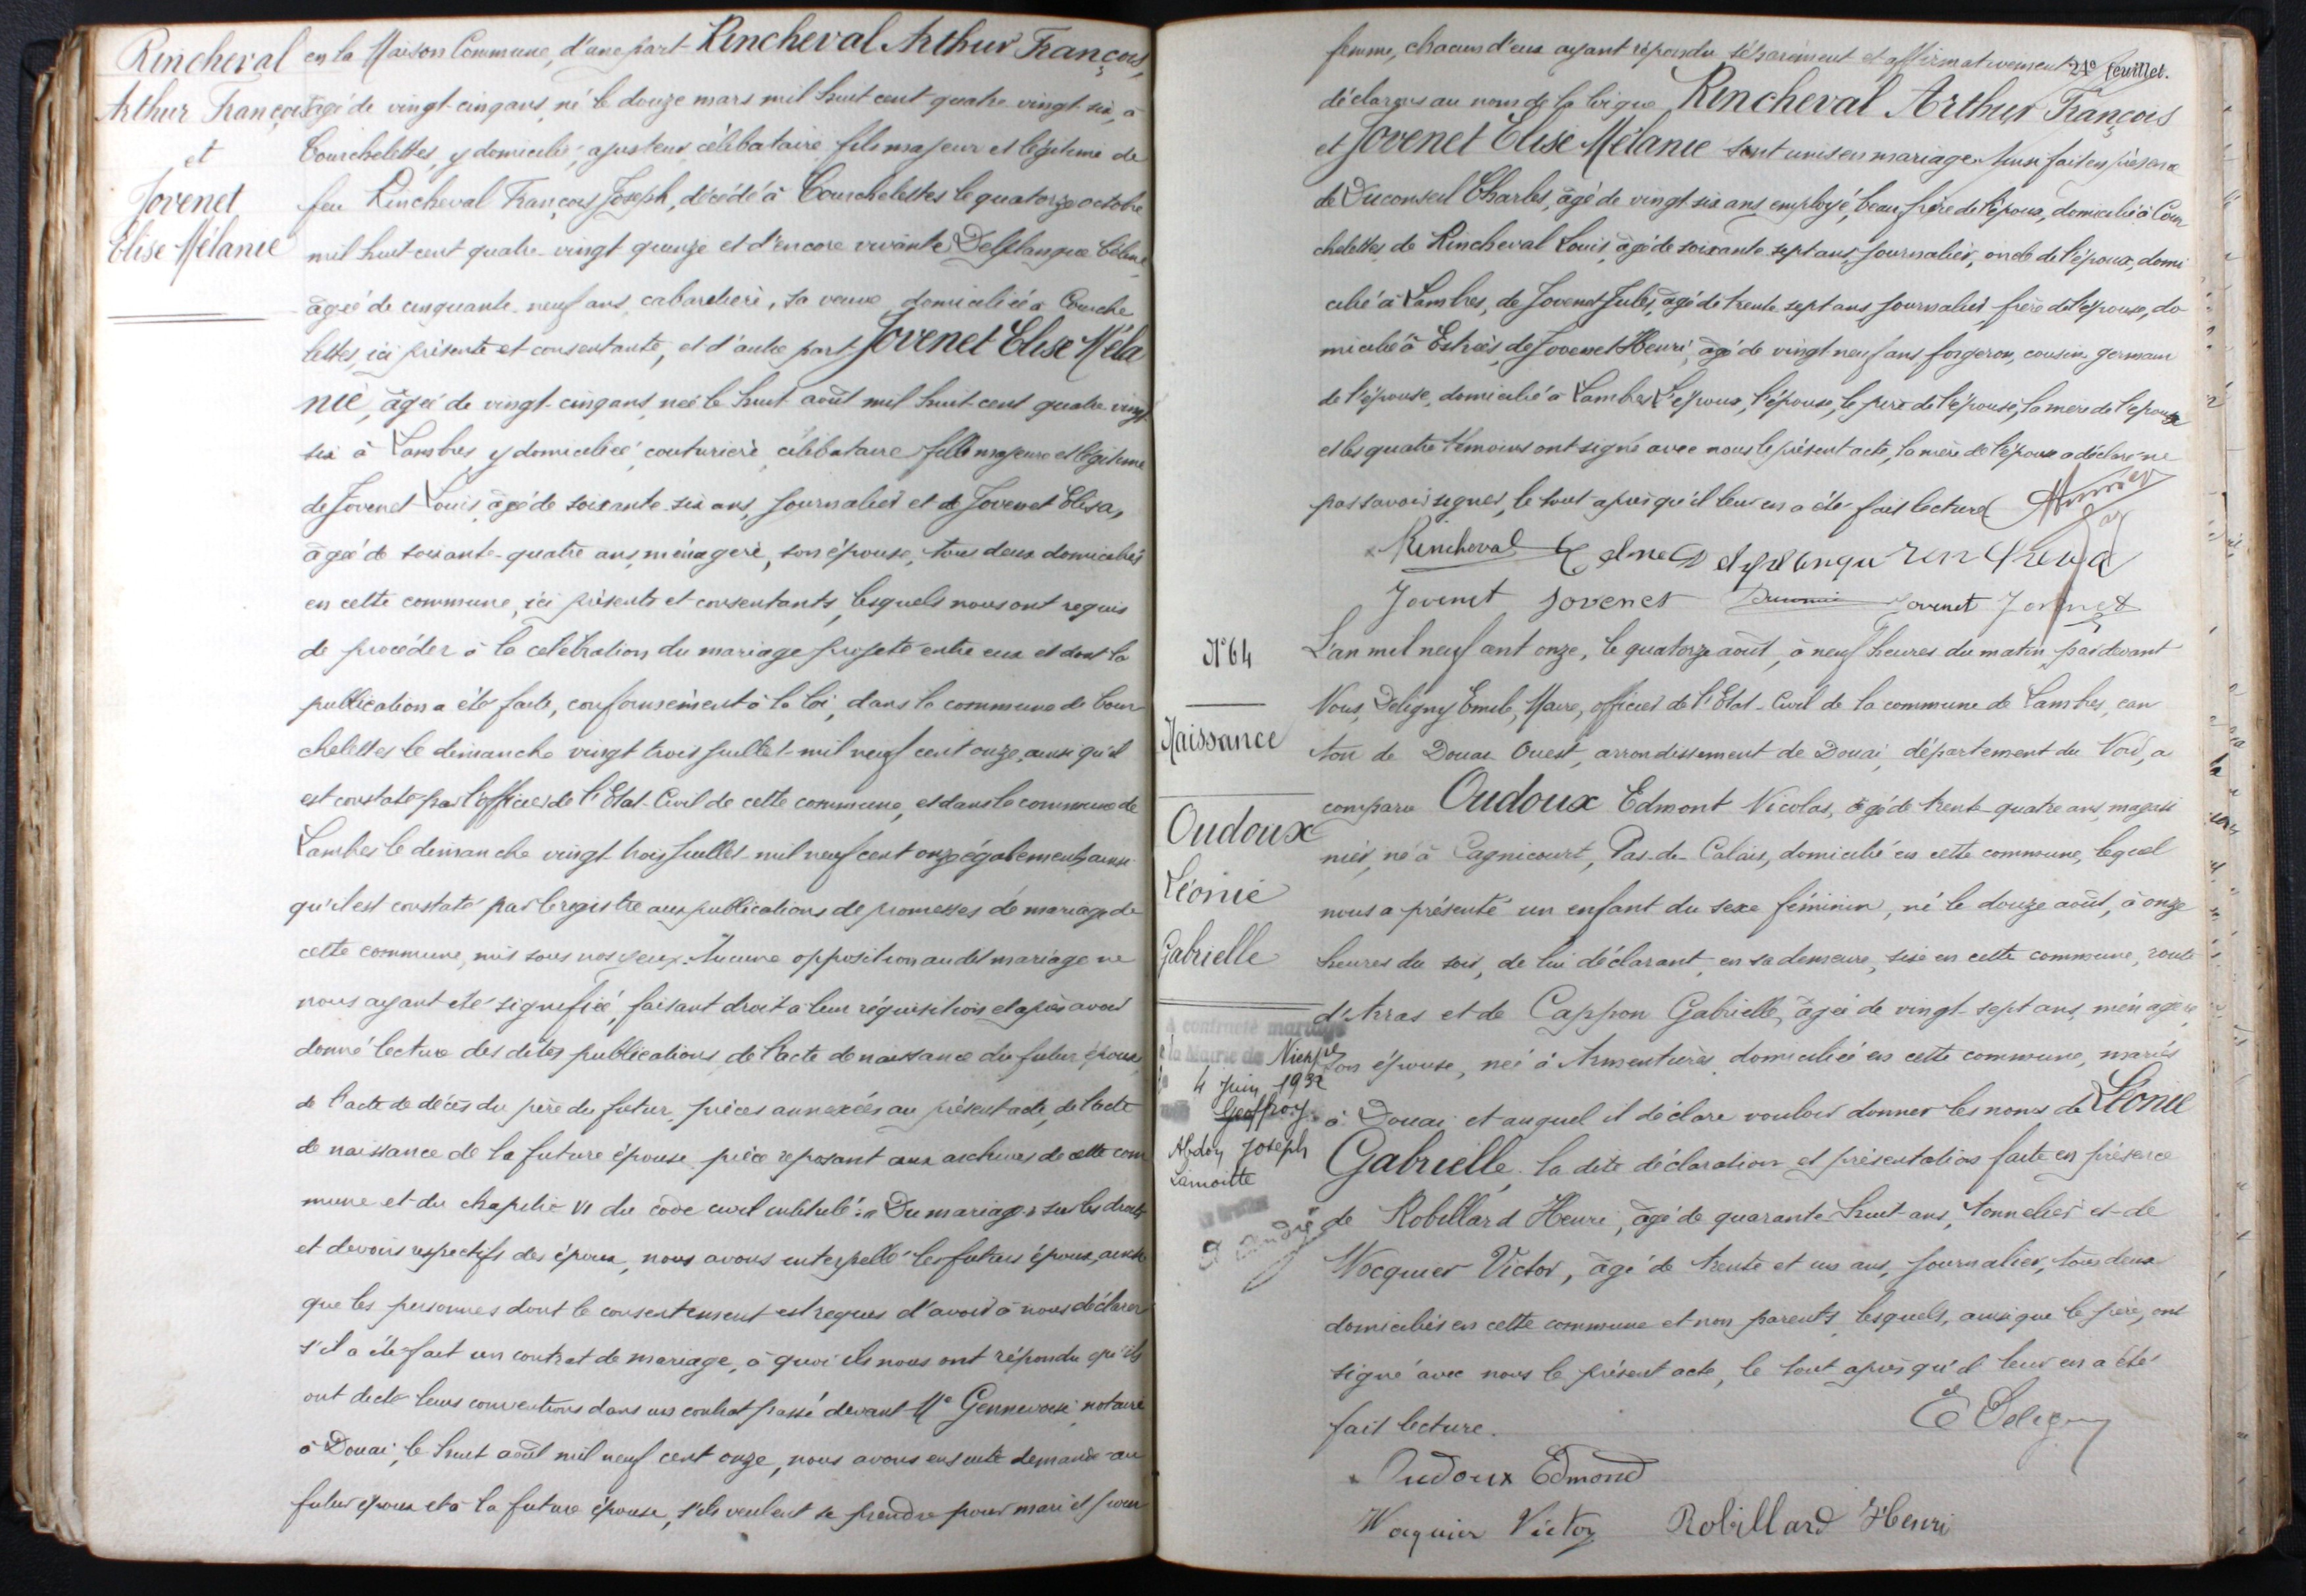 Rincheval
Arthur François
et
Jovenet
Elise Mélanie
en la Maison Commune, d'une part Rincheval Arthur François,
âgé de vingt-cinq ans, né le douze mars mil huit cent quatre vingt six, à
Courchelettes, y domicilié, ajusteur, célibataire, fils majeur et légitime de
feu Rincheval François Joseph, décédé à Courchelettes le quatorze octobre
mil huit cent quatre-vingt quinze et d'encore vivante Deflangue Céline,
âgée de cinquante-neuf ans, cabaretière, sa veuve, domiciliée à Courche
lettes, ici présente et consentante, et d'autre part Jovenet Elise Méla
nie, âgée de vingt-cinq ans, née le huit août mil huit cent quatre vingt
six à Lambres, y domiciliée, couturière, célibataire, fille majeure et légitime
de Jovenet Louis, âgé de soixante six ans, journalier et de Jovenet Elisa,
âgée de soixante-quatre ans, ménagère, son épouse, tous deux domiciliés
en cette commune, ici présents et consentants, lesquels nous ont requis
de procéder à la célébration du mariage projeté entre eux et dont la
publication a été faite, conformément à la loi, dans la commune de Cour
chelettes le dimanche vingt trois juillet mil neuf cent onze, ainsi qu'il
est constaté par l'officier de l'Etat-Civil de cette commune, et dans la commune de
Lambres le dimanche vingt-trois juillet mil neuf cent onze également, ainsi
qu'il est constaté par le registre aux publications de promesses de mariage de
cette commune, mis sous nos yeux. Aucune opposition au dit mariage ne
nous ayant été signifiée, faisant droit à leur réquisition et après avoir
donné lecture des dites publications, de l'acte de naissance du futur époux,
de l'acte de décès du père du futur, pièces annexées au présent acte, de l'acte
de naissance de la future épouse, pièce reposant aux archives de cette com
mune et du chapitre VI du code civil intitulé: « Du mariage » sur les droits
et devoirs respectifs des époux, nous avons interpellé les futurs époux, ainsi
que les personnes dont le consentement est requis d'avoir à nous déclarer
s'il a été fait un contrat de mariage, à quoi ils nous ont répondu qu'ils
ont dicté leurs conventions dans un contrat passé devant Me Gennevoise, notaire
à Douai, le huit août mil neuf cent onze, nous avons ensuite demandé au
futur époux et à la future épouse, s'ils veulent se prendre pour mari et pour
24e feuillet.
femme, chacun d'eux ayant répondu séparément et affirmativement
déclarons au nom de la loi que Rincheval Arthur François
et Jovenet Elise Mélanie sont unis en mariage. Ainsi fait en présence
de Duconseil Charles, âgé de vingt six ans, employé, beau frère de l'époux, domicilié à Cour
chelettes, de Rincheval Louis, âgé de soixante sept ans, journalier, oncle de l'époux, domi
cilié à Lambres, de Jovenet Jules, âgé de trente sept ans, journalier, frère de l'épouse, do
micilié à Estrées, de Jovenet Henri, âgé de vingt neuf ans, forgeron, cousin germain
de l'épouse, domicilié à Lambres. L'époux, l'épouse, le père de l'épouse, la mère de l'épouse
et les quatre témoins ont signé avec nous le présent acte, la mère de l'époux a déclaré ne
pas savoir signer, le tout après qu'il leur en a été fait lecture
Rincheval
Jovenet Jovenet Jovenet Jovenet
N° 64
Naissance
Oudoux
Léonie
Gabrielle
A contracté mariage
à la Mairie de Nieppe
le 4 Juin 1932
Geoffroy
Abdon Joseph
Lamoitte
L'an mil neuf cent onze, le quatorze août, à neuf heures du matin, pardevant
Nous, Deligny Emile, Maire, officier de l'Etat-Civil de la commune de Lambres, can
ton de Douai Ouest, arrondissement de Douai, département du Nord, a
comparu Oudoux Edmont Nicolas, âgé de trente-quatre ans, magasi
nier, né à Cagnicourt, Pas-de-Calais, domicilié en cette commune, lequel
nous a présenté un enfant du sexe féminin, né le douze août, à onze
heures du soir, de lui déclarant, en sa demeure, sise en cette commune, route
d'Arras et de Cappon Gabrielle, âgée de vingt-sept ans, ménagère,
son épouse, née à Armentières, domiciliée en cette commune, mariés
à Douai et auquel il déclare vouloir donner les noms de Léonie
Gabrielle, la dite déclaration et présentation faite en présence
de Robillard Henri, âgé de quarante-huit ans, tonnelier et de
Wocquier Victor, âgé de trente et un ans, journalier, tous deux
domiciliés en cette commune et non parents, lesquels, ainsi que le père, ont
signé avec nous le présent acte, le tout après qu'il leur en a été
fait lecture.
E Deligny
Oudoux Edmond
Wocquier Victor Robillard Henri